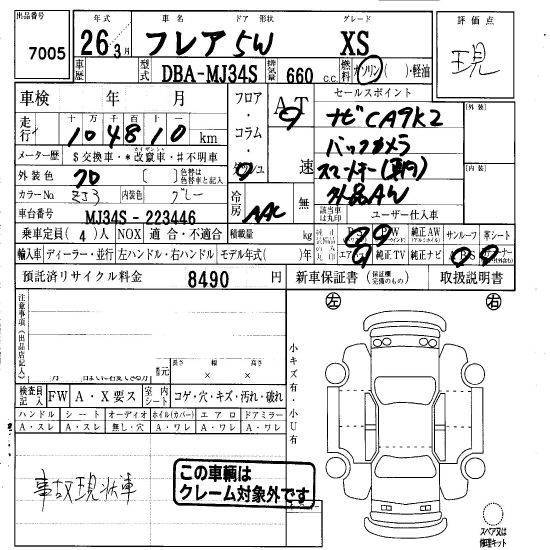 出品番号 年式 車名 ドア 形状 グレード 評価点
7005 26年3月 フレア 5W XS 現
車歴 型式 DBA-MJ34S 排気量 660 c.c. 燃料 ガソリン( )・軽油
車検 年 月 フロア・コラム・ AT セールスポイント
走行 十万 千 百 十 一 ナビCA9K2 外装
104810 km バックカメラ
メーター歴 $交換車・*改竄車・#不明車 速
外装色 クロ [ ] 色替は色替車と記入 内装
カラーNo ZJ3 内装色 グレー 社外品AW
車台番号 MJ34S - 223446 冷房 AAC 無 該当車は丸印 ユーザー仕入車
乗車定員(4)人 NOX 適合・不適合 積載量 kg PS PW 純正AW サンルーフ 革シート
輸入車 ディーラー・並行 左ハンドル・右ハンドル モデル年式( )年 純正TV 純正ナビ
預託済リサイクル料金 8490 円 新車保証書 (保証欄完備のもの) 取扱説明書
左 右
注意事項(出品店記入)
長さ 幅 高さ
小キズ有・小U有
検査員記入 FW A・X要ス 室内シート コゲ・穴・キズ・汚れ・破れ
ハンドル シート オーディオ ホイル(カバー) エアロ ドアミラー
A・スレ A・スレ 無し・穴 A・ワレ A・ワレ A・ワレ
事故現状車
この車輌は
クレーム対象外です
スペア又は
修理キット